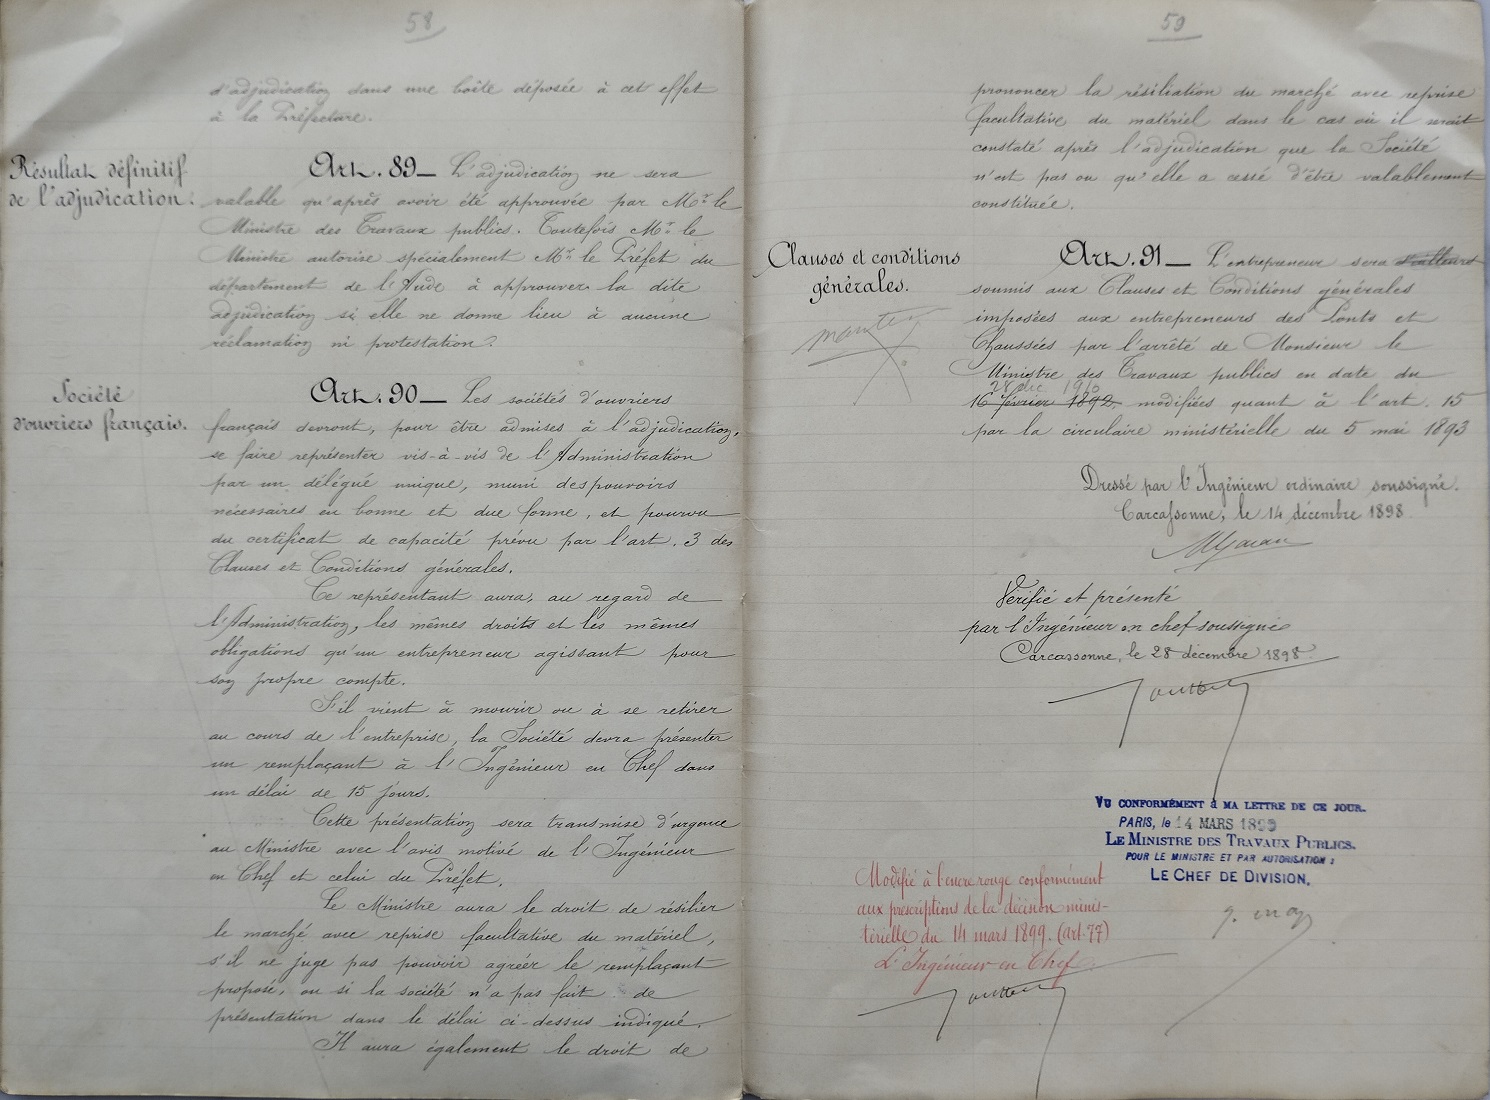 58
d'adjudication dans une boîte déposée à cet effet
à la Préfecture.
Résultat définitif
de l'adjudication.
Art. 89 — L'adjudication ne sera
valable qu'après avoir été approuvée par Mr le
Ministre des Travaux publics. Toutefois Mr le
Ministre autorise spécialement Mr le Préfet du
département de l'Aude à approuver la dite
adjudication si elle ne donne lieu à aucune
réclamation ni protestation.
Société
d'ouvriers français.
Art. 90 — Les sociétés d'ouvriers
français devront, pour être admises à l'adjudication,
se faire représenter vis-à-vis de l'Administration
par un délégué unique, muni des pouvoirs
nécessaires en bonne et due forme, et pourvu
du certificat de capacité prévu par l'art. 3 des
Clauses et Conditions générales.
Ce représentant aura, au regard de
l'Administration, les mêmes droits et les mêmes
obligations qu'un entrepreneur agissant pour
son propre compte.
S'il vient à mourir ou à se retirer
au cours de l'entreprise, la Société devra présenter
un remplaçant à l'Ingénieur en Chef dans
un délai de 15 jours.
Cette présentation sera transmise d'urgence
au Ministre avec l'avis motivé de l'Ingénieur
en Chef et celui du Préfet.
Le Ministre aura le droit de résilier
le marché avec reprise facultative du matériel,
s'il ne juge pas pouvoir agréer le remplaçant
proposé, ou si la société n'a pas fait de
présentation dans le délai ci-dessus indiqué.
Il aura également le droit de
59
prononcer la résiliation du marché avec reprise
facultative du matériel dans le cas où il serait
constaté après l'adjudication que la Société
n'est pas ou qu'elle a cessé d'être valablement
constituée.
Clauses et conditions
générales.
Art. 91 — L'entrepreneur sera d'ailleurs
soumis aux Clauses et Conditions générales
imposées aux entrepreneurs des Ponts et
Chaussées par l'arrêté de Monsieur le
Ministre des Travaux publics en date du
28 dec 1910
16 février 1892, modifiées quant à l'art. 15
par la circulaire ministérielle du 5 mai 1893
Dressé par l'Ingénieur ordinaire soussigné.
Carcassonne, le 14 décembre 1898.
Vérifié et présenté
par l'Ingénieur en chef soussigné
Carcassonne, le 28 décembre 1898.
VU CONFORMÉMENT à MA LETTRE DE CE JOUR.
PARIS, le 14 MARS 1899
LE MINISTRE DES TRAVAUX PUBLICS.
POUR LE MINISTRE ET PAR AUTORISATION :
LE CHEF DE DIVISION,
Modifié à l'encre rouge conformément
aux prescriptions de la décision minis-
térielle du 14 mars 1899. (art. 77)
L'Ingénieur en Chef